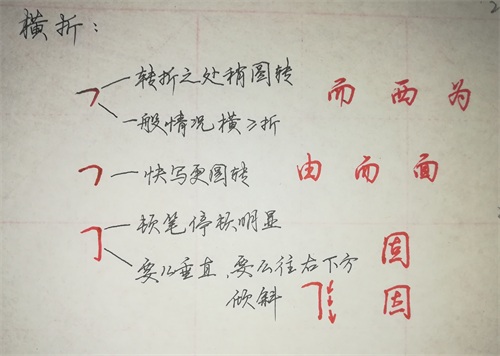 横折：
转折之处稍圆转
而 西 为
一般情况横≥折
快写更圆转
由 而 面
顿笔停顿明显
要么垂直、要么往右下方
固
倾斜
因